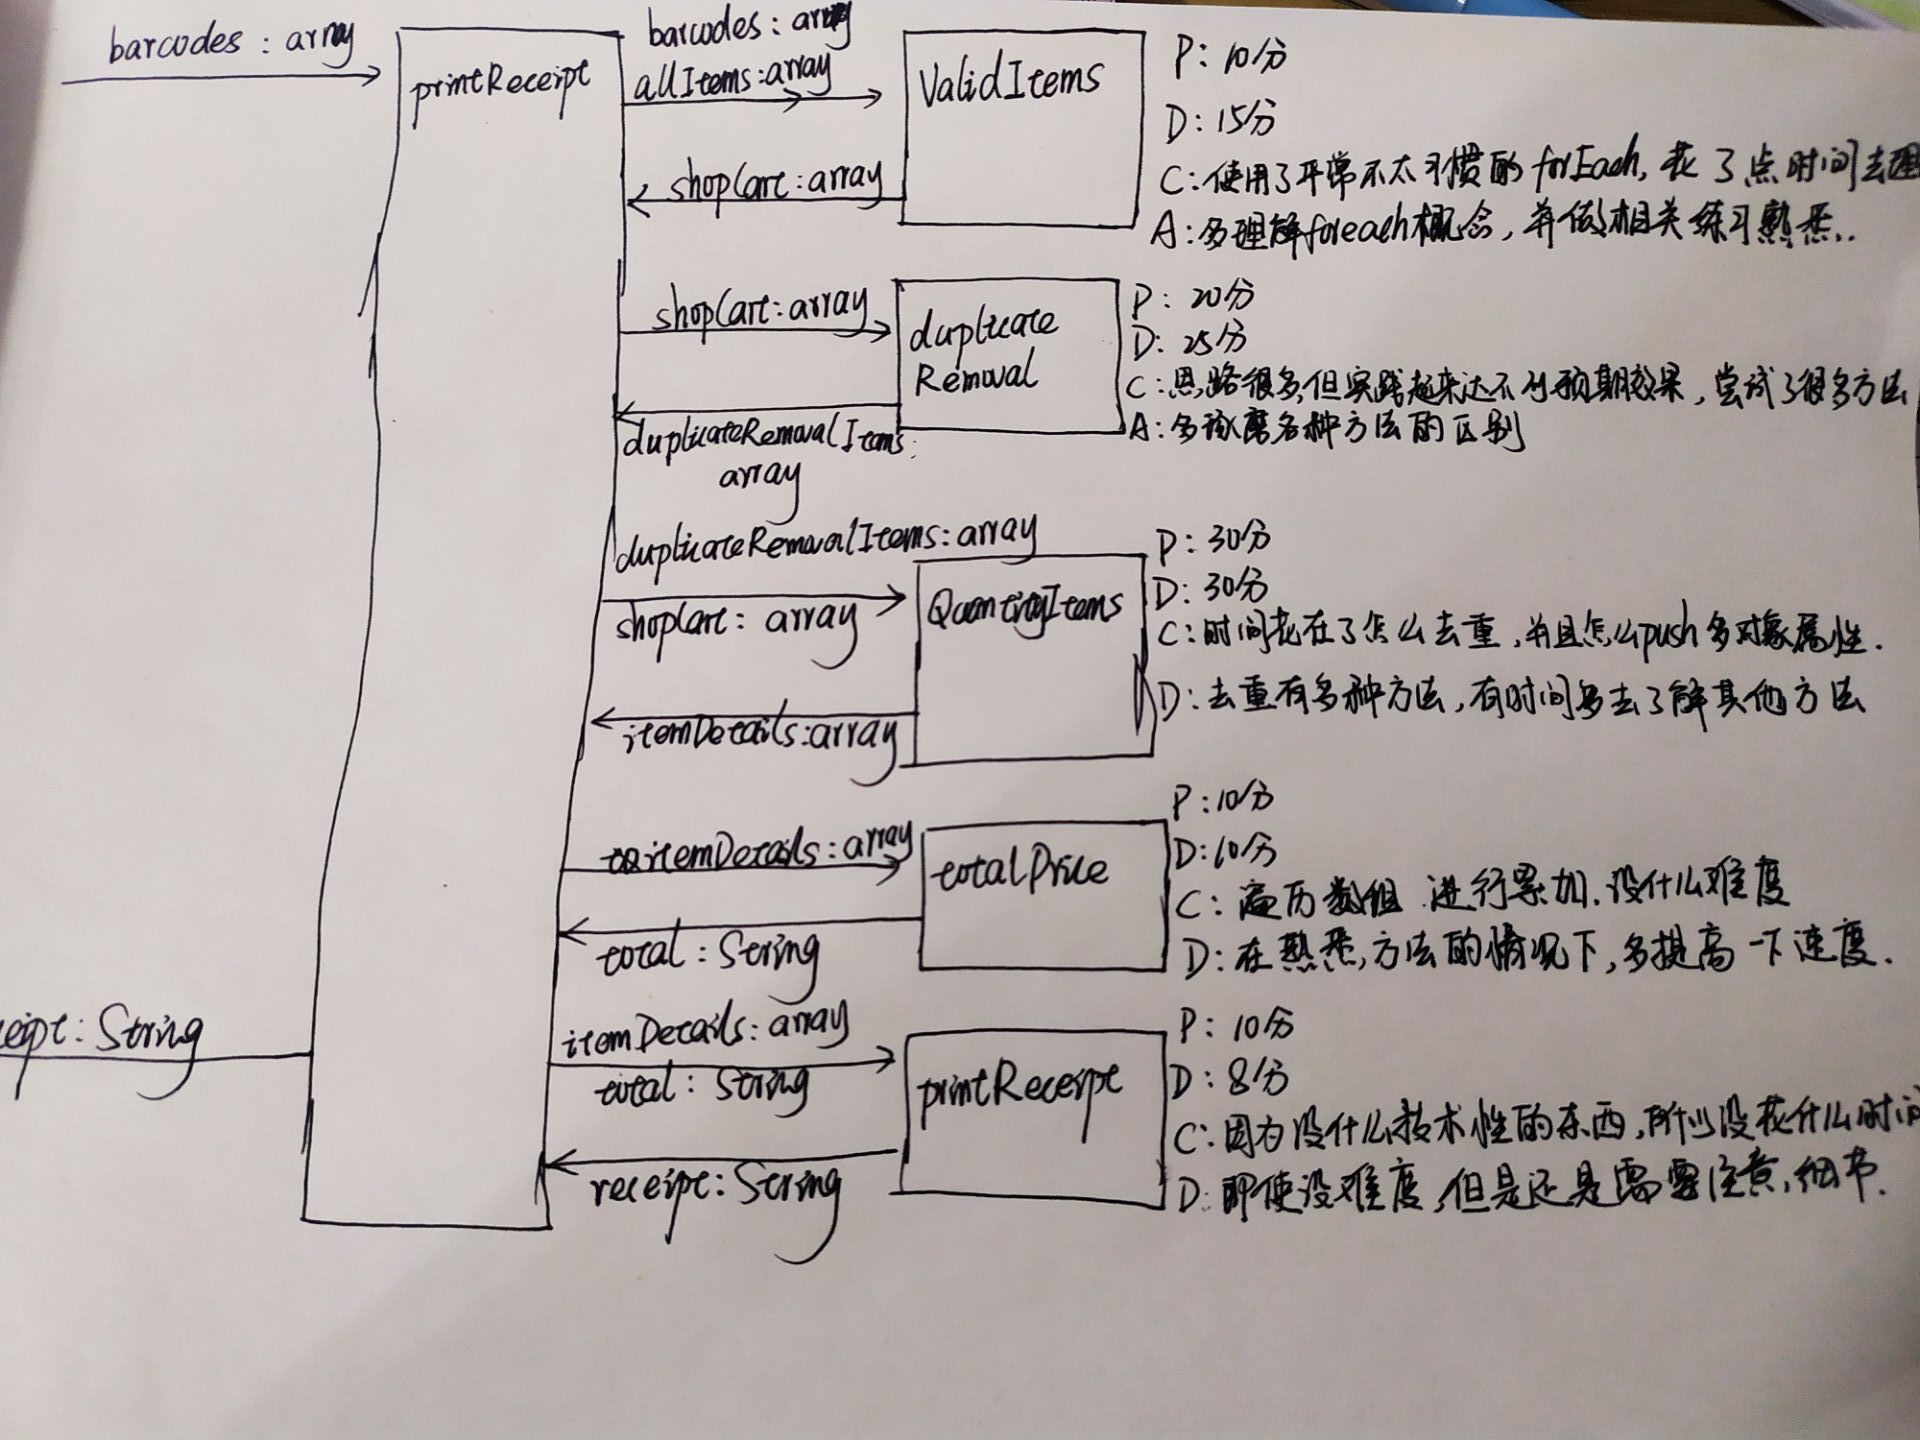 barcodes: array
printReceipt
barcodes: array
allItems: array
ValidItems
shopCart: array
P: 10分
D: 15分
C: 使用了平常不太习惯的forEach, 花了点时间去理
A: 多理解foreach概念, 并做相关练习熟悉..
shopCart: array
duplicate
Removal
duplicateRemovalItems:
array
P: 20分
D: 25分
C: 思路很多,但实践起来达不到预期效果, 尝试了很多方法
A: 多琢磨各种方法的区别
duplicateRemovalItems: array
shopCart: array
QuantityItems
itemDetails: array
P: 30分
D: 30分
C: 时间花在了怎么去重, 并且怎么push多对象属性.
D: 去重有多种方法, 有时间多去了解其他方法
itemDetails: array
totalPrice
total: String
P: 10分
D: 10分
C: 遍历数组 进行累加. 没什么难度
D: 在熟悉方法的情况下, 多提高一下速度.
itemDetails: array
total: String
printReceipt
receipt: String
P: 10分
D: 8分
C: 因为没什么技术性的东西, 所以没花什么时间
D: 即使没难度, 但是还是需要注意细节.
ceipt: String